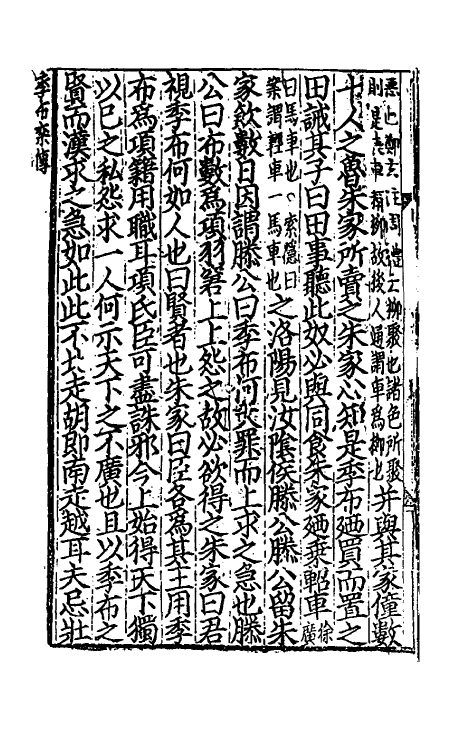 也鄭玄注周禮云柳聚也諸色所聚
則是喪車稱柳後人通謂車為柳也
并與其家僮數
十人之魯朱家所賣之朱家心知是季布廼買而置之
田誡其子曰田事聽此奴必與同食朱家廼乗軺車
徐
廣
曰馬車也○索隱曰
案謂輕車一馬車也
之洛陽見汝陰侯滕公滕公留朱
家飲數日因謂滕公曰季布何大罪而上求之急也滕
公曰布數為項羽窘上上怨之故必欲得之朱家曰君
視季布何如人也曰賢者也朱家曰臣各為其主用季
布為項籍用職耳項氏臣可盡誅邪今上始得天下獨
以己之私怨求一人何示天下之不廣也且以季布之
賢而漢求之急如此此不北走胡即南走越耳夫忌壯
季布欒傳